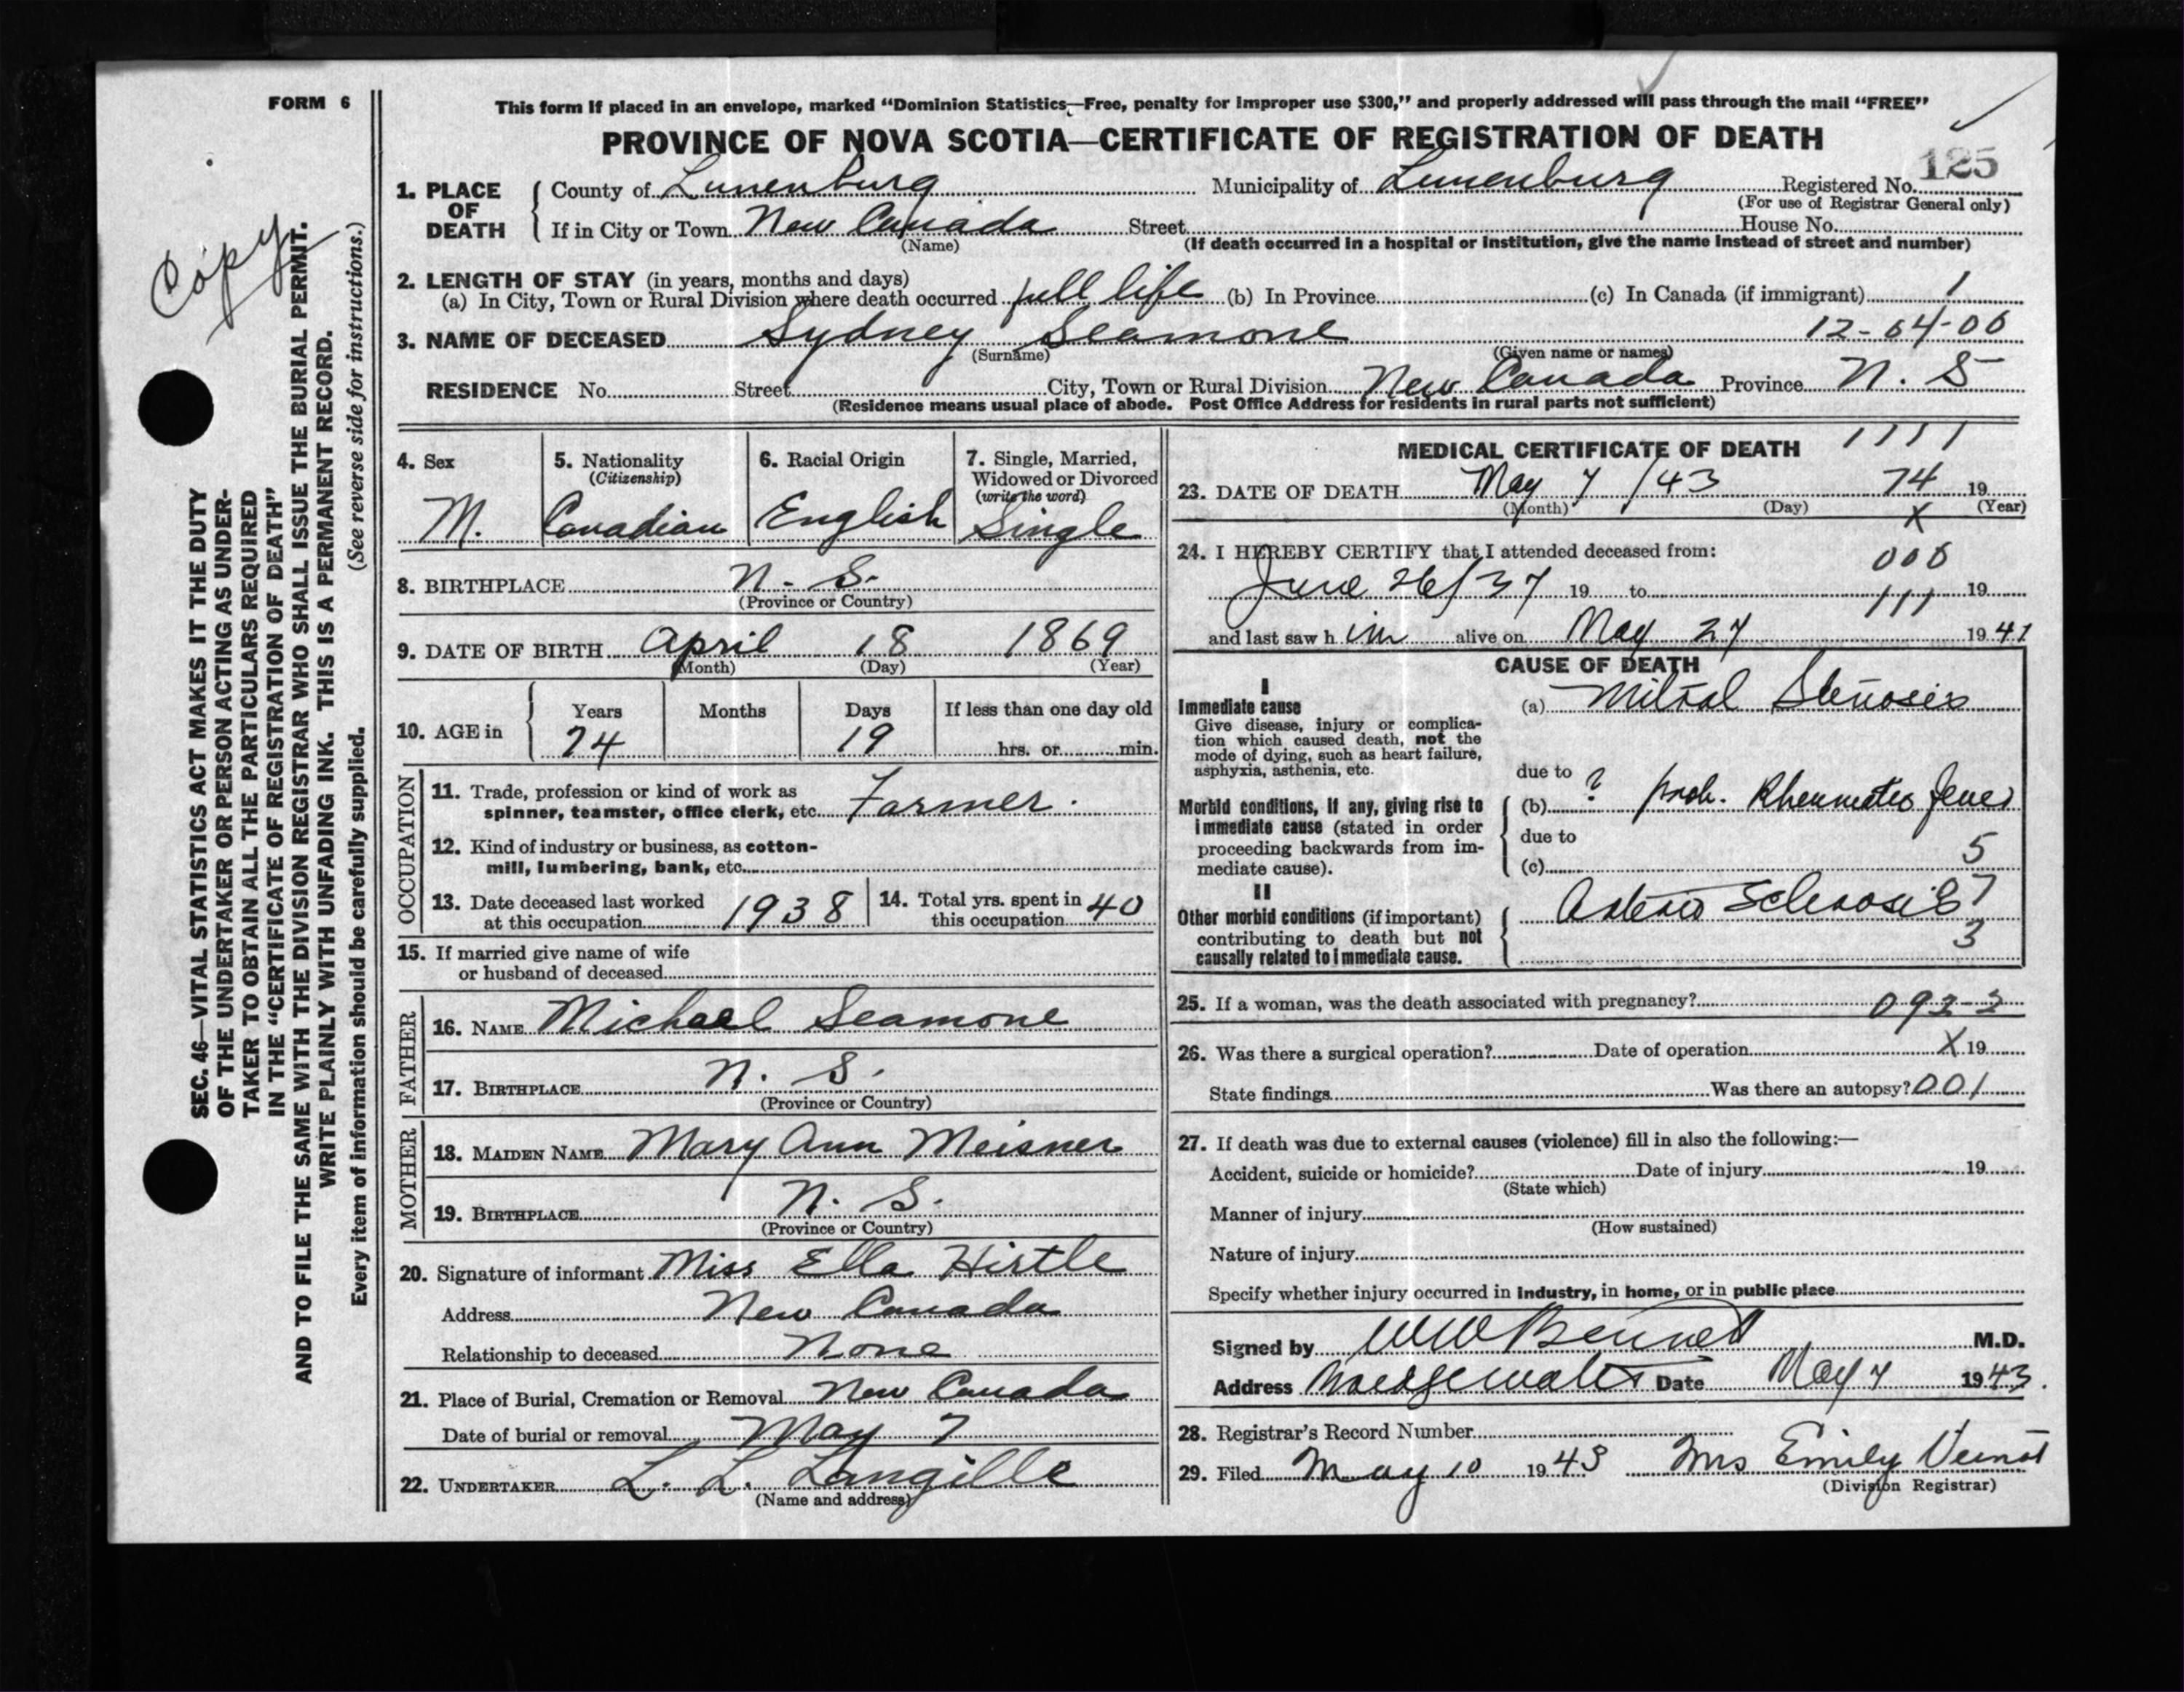 FORM 6
This form if placed in an envelope, marked “Dominion Statistics—Free, penalty for improper use $300,” and properly addressed will pass through the mail “FREE”
PROVINCE OF NOVA SCOTIA—CERTIFICATE OF REGISTRATION OF DEATH
125
1. PLACE OF DEATH
County of Lunenburg Municipality of Lunenburg Registered No.
(For use of Registrar General only)
If in City or Town New Canada Street House No.
(Name) (If death occurred in a hospital or institution, give the name instead of street and number)
2. LENGTH OF STAY (in years, months and days)
(a) In City, Town or Rural Division where death occurred full life (b) In Province (c) In Canada (if immigrant) 1
12-64-06
3. NAME OF DECEASED Sydney Seamone
(Surname) (Given name or names)
RESIDENCE No. Street City, Town or Rural Division New Canada Province N. S
(Residence means usual place of abode. Post Office Address for residents in rural parts not sufficient)
4. Sex
M.
5. Nationality
(Citizenship)
Canadian
6. Racial Origin
English
7. Single, Married,
Widowed or Divorced
(write the word)
Single
8. BIRTHPLACE N. S.
(Province or Country)
9. DATE OF BIRTH April 18 1869
(Month) (Day) (Year)
10. AGE in
Years Months Days If less than one day old
74 19 hrs. or min.
OCCUPATION
11. Trade, profession or kind of work as
spinner, teamster, office clerk, etc. Farmer.
12. Kind of industry or business, as cotton-
mill, lumbering, bank, etc.
13. Date deceased last worked
at this occupation 1938
14. Total yrs. spent in
this occupation 40
15. If married give name of wife
or husband of deceased
FATHER
16. NAME Michael Seamone
17. BIRTHPLACE N. S.
(Province or Country)
MOTHER
18. MAIDEN NAME Mary Ann Meisner
19. BIRTHPLACE N. S.
(Province or Country)
20. Signature of informant Miss Ella Hirtle
Address New Canada
Relationship to deceased None
21. Place of Burial, Cremation or Removal New Canada
Date of burial or removal May 7
22. UNDERTAKER L. L. Langille
(Name and address)
MEDICAL CERTIFICATE OF DEATH 1111
23. DATE OF DEATH May 7 /43 74 19
(Month) (Day) (Year)
X
24. I HEREBY CERTIFY that I attended deceased from: 006
June 26/37 19 to 19
111
and last saw him alive on May 27 1941
CAUSE OF DEATH
I
Immediate cause
Give disease, injury or complica-
tion which caused death, not the
mode of dying, such as heart failure,
asphyxia, asthenia, etc.
(a) Mitral Stenosis
due to
Morbid conditions, if any, giving rise to
immediate cause (stated in order
proceeding backwards from im-
mediate cause).
(b) ? prob. Rheumatic fever
due to
(c) 5
II
Other morbid conditions (if important)
contributing to death but not
causally related to immediate cause.
Arterio Sclerosis 7
3
25. If a woman, was the death associated with pregnancy? 092-2
26. Was there a surgical operation? Date of operation X 19
State findings Was there an autopsy? 001
27. If death was due to external causes (violence) fill in also the following:—
Accident, suicide or homicide? Date of injury 19
(State which)
Manner of injury
(How sustained)
Nature of injury
Specify whether injury occurred in industry, in home, or in public place
Signed by WW Bennett M.D.
Address Bridgewater Date May 7 1943.
28. Registrar's Record Number
29. Filed May 10 1943 Mrs Emily Veinot
(Division Registrar)
Copy
SEC. 46—VITAL STATISTICS ACT MAKES IT THE DUTY
OF THE UNDERTAKER OR PERSON ACTING AS UNDER-
TAKER TO OBTAIN ALL THE PARTICULARS REQUIRED
IN THE “CERTIFICATE OF REGISTRATION OF DEATH”
AND TO FILE THE SAME WITH THE DIVISION REGISTRAR WHO SHALL ISSUE THE BURIAL PERMIT.
WRITE PLAINLY WITH UNFADING INK. THIS IS A PERMANENT RECORD.
Every item of information should be carefully supplied. (See reverse side for instructions.)